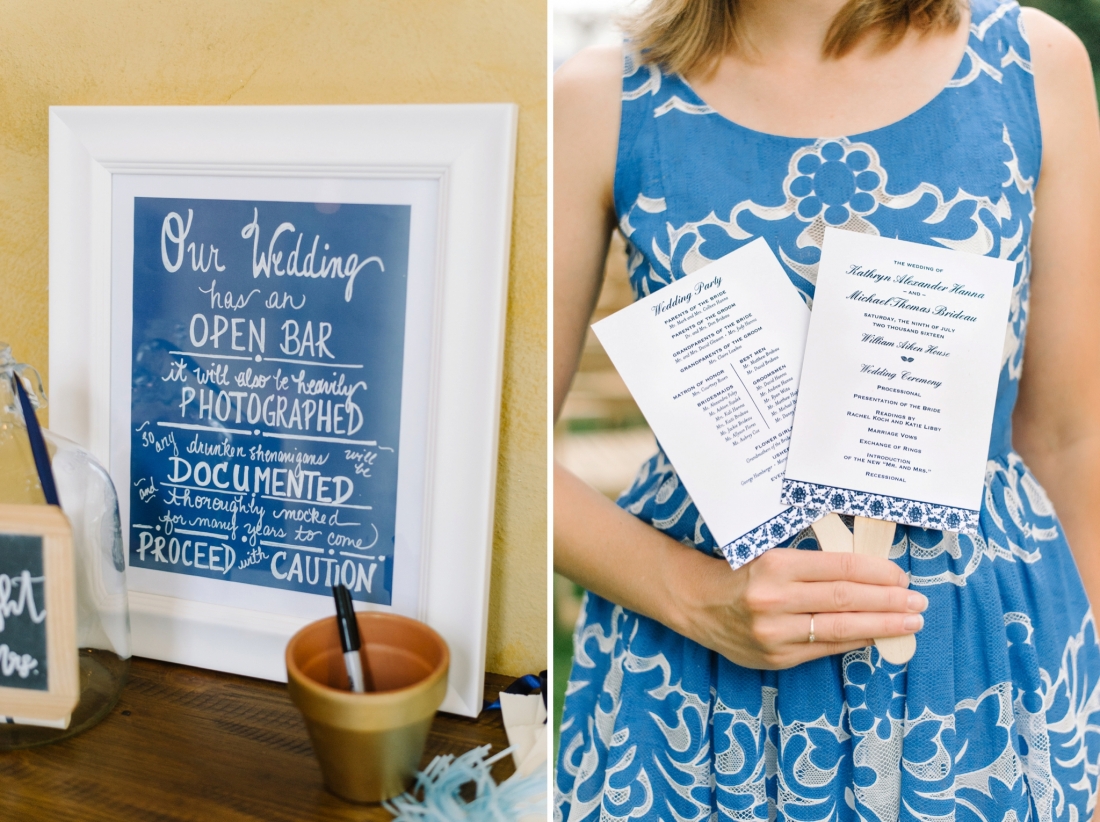 Our Wedding
has an
OPEN BAR
it will also be heavily
PHOTOGRAPHED
so any drunken shenanigans will be
DOCUMENTED
and thoroughly mocked
for many years to come
PROCEED with CAUTION
ght
Mrs.
Wedding Party
PARENTS OF THE BRIDE
PARENTS OF THE GROOM
GRANDPARENTS OF THE BRIDE
GRANDPARENTS OF THE GROOM
MATRON OF HONOR
BRIDESMAIDS
BEST MEN
GROOMSMEN
FLOWER GIRL
THE WEDDING OF
Kathryn Alexander Hanna
AND
Michael Thomas Brideau
SATURDAY, THE NINTH OF JULY
TWO THOUSAND SIXTEEN
William Aiken House
Wedding Ceremony
PROCESSIONAL
PRESENTATION OF THE BRIDE
READINGS BY
RACHEL KOCH AND KATIE LIBBY
MARRIAGE VOWS
EXCHANGE OF RINGS
INTRODUCTION
OF THE NEW "MR. AND MRS."
RECESSIONAL